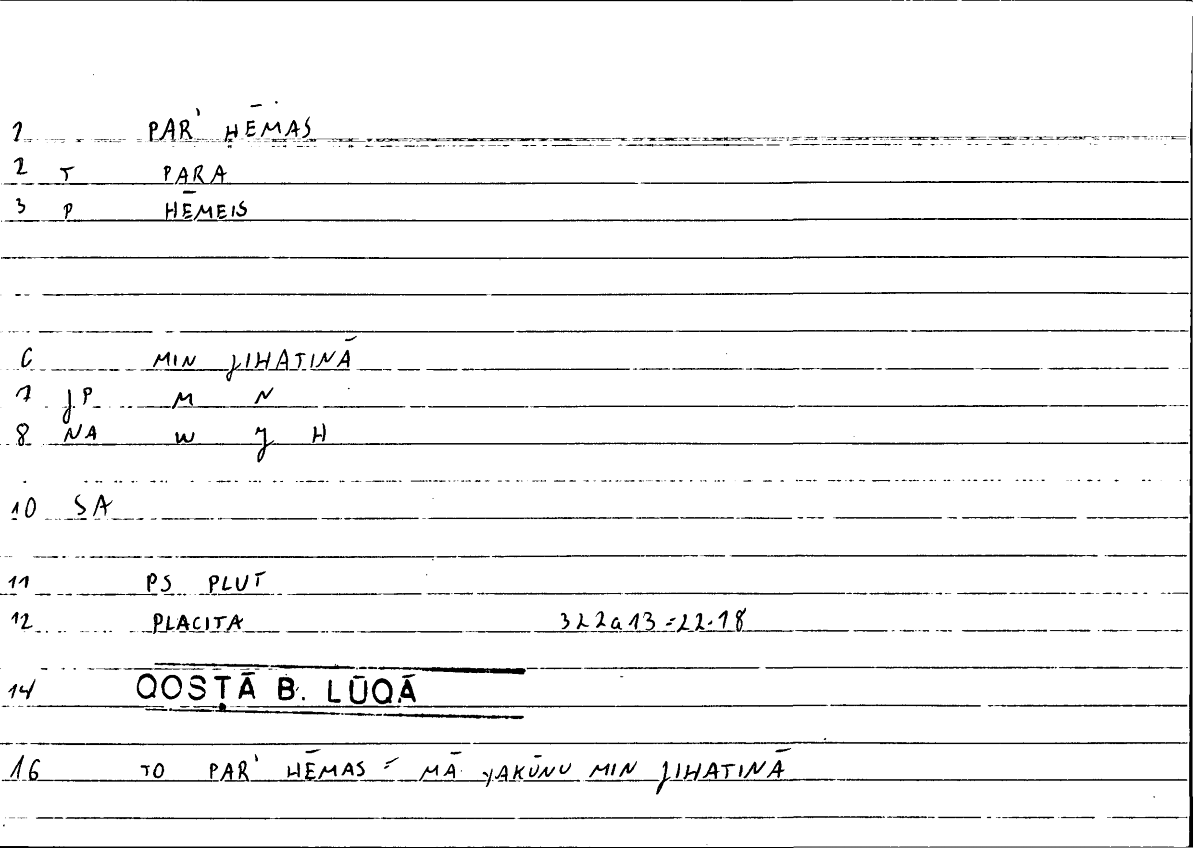 1 PAR' HĒMAS
2 T PARA
3 P HĒMEIS
6 MIN JIHATINĀ
7 JP M N
8 NA W J H
10 SA
11 PS PLUT
12 PLACITA 322a13=22.18
14 QOSṬĀ B. LŪQĀ
16 TO PAR' HĒMAS = MĀ YAKŪNU MIN JIHATINĀ